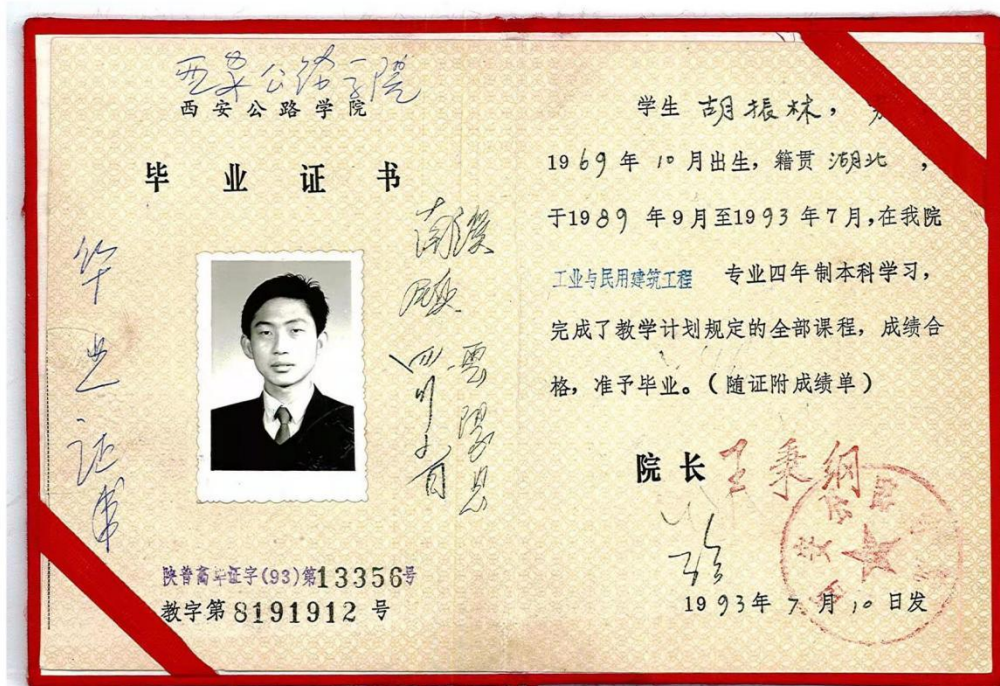 西安公路学院
西安公路学院
毕业证书
毕业证书
四川省
云阳县
陕普高毕证字(93)第13356号
教字第8191912号
学生 胡振林,
1969年10月出生,籍贯 湖北,
于1989年9月至1993年7月,在我院
工业与民用建筑工程 专业四年制本科学习,
完成了教学计划规定的全部课程,成绩合
格,准予毕业。(随证附成绩单)
院长 王秉纲
1993年7月10日发